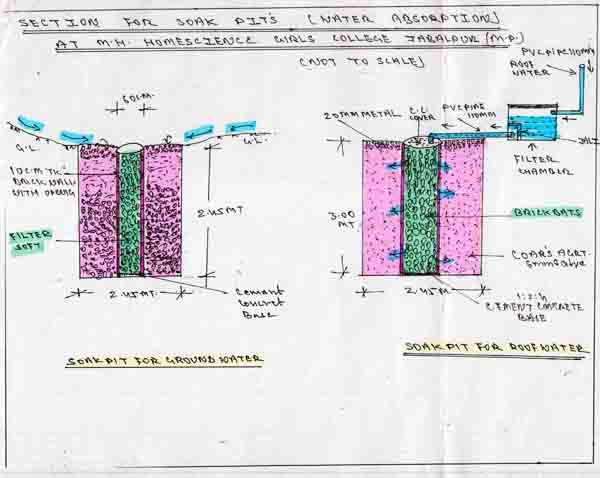 SECTION FOR SOAK PIT'S (WATER ABSORPTION)
AT M.H. HOMESCIENCE GIRLS COLLEGE JABALPUR (M.P.)
(NOT TO SCALE)
60CM.
G.L.
G.L.
10CM TK.
BRICK WALL
WITH OPENING
FILTER
SOFT
2.45MT
2.45MT.
Cement
Concret
Base
SOAKPIT FOR GROUND WATER
PVC PIPE 110MM
ROOF
WATER
20MM METAL
C.C.
COVER
PVC PIPE
110MM
FILTER
CHAMBER
3.00
MT.
BRICK BATS
COARS AGRT.
2.45M
CEMENT CONCRETE
BASE
SOAKPIT FOR ROOFWATER